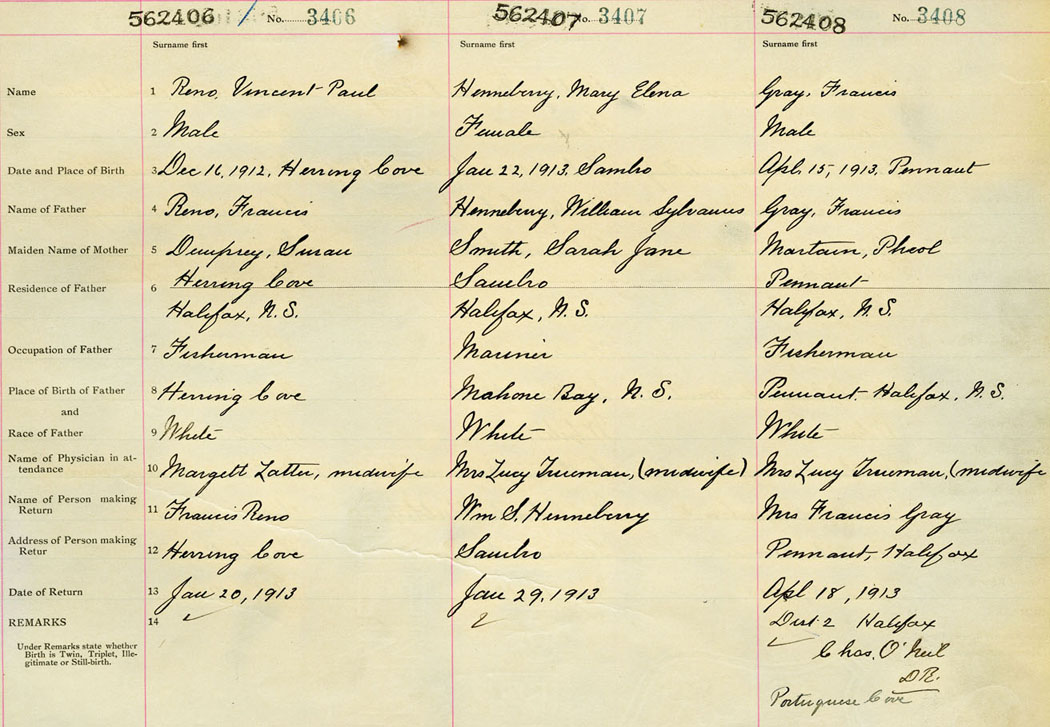 562406 No. 3406 562407 No. 3407 562408 No. 3408
Surname first Surname first Surname first
Name 1 Reno, Vincent Paul Henneberry, Mary Elena Gray, Francis
Sex 2 Male Female Male
Date and Place of Birth 3 Dec 16, 1912, Herring Cove Jan 22, 1913. Sambro Apl. 15, 1913, Pennant
Name of Father 4 Reno, Francis Henneberry, William Sylvanus Gray, Francis
Maiden Name of Mother 5 Dempsey, Susan Smith, Sarah Jane
Residence of Father 6 Herring Cove Sambro Pennant
Halifax, N.S. Halifax, N.S. Halifax, N.S.
Occupation of Father 7 Fisherman Mariner Fisherman
Place of Birth of Father 8 Herring Cove Mahone Bay, N.S. Pennant Halifax, N.S.
and
Race of Father 9 White White White
Name of Physician in at-
tendance 10 midwife Mrs Lucy Trueman, (midwife) Mrs Lucy Trueman, (midwife
Name of Person making
Return 11 Francis Reno Wm S. Henneberry Mrs Francis Gray
Address of Person making
Retur 12 Herring Cove Sambro Pennant, Halifax
Date of Return 13 Jan 20, 1913 Jan 29, 1913 Apl 18, 1913
REMARKS 14 Dist. 2 Halifax
Under Remarks state whether
Birth is Twin, Triplet, Ille-
gitimate or Still-birth.
Chas. O'Neil
D.R.
Portuguese Cove